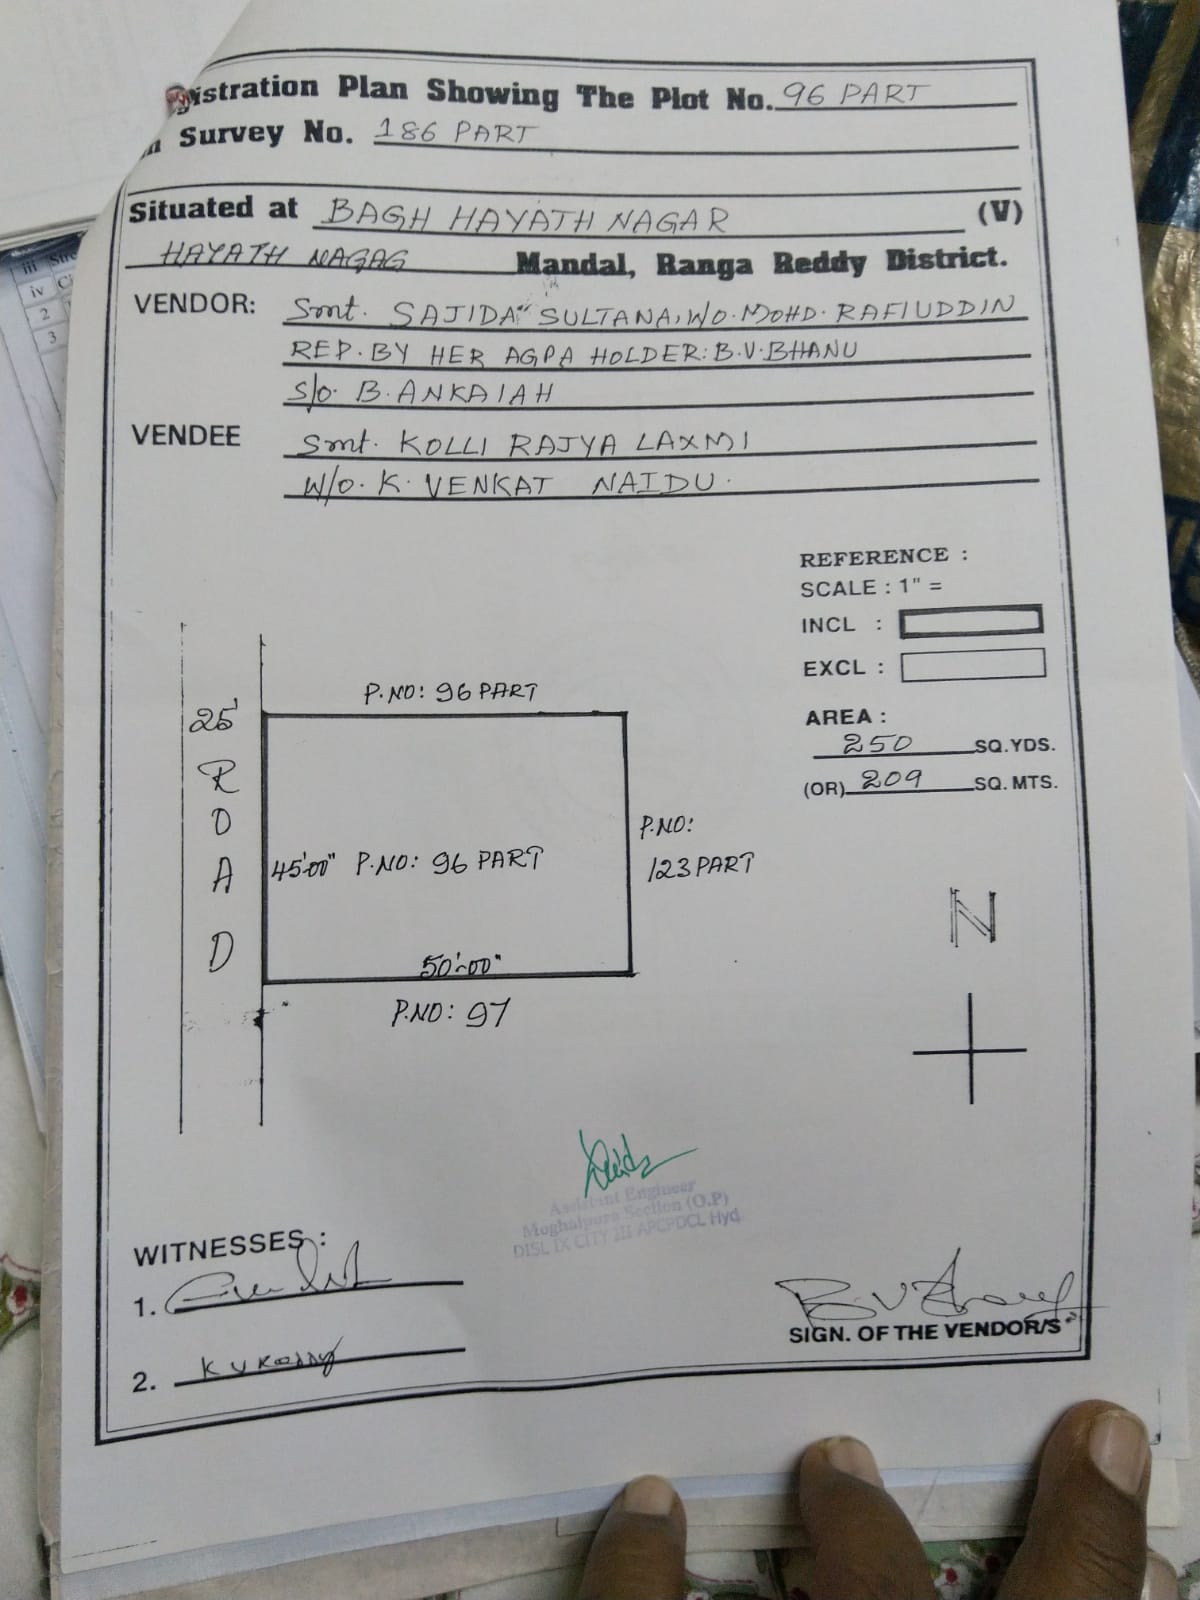 gistration Plan Showing The Plot No. 96 PART
in Survey No. 186 PART
Situated at BAGH HAYATH NAGAR (V)
HAYATH NAGAG Mandal, Ranga Reddy District.
VENDOR: Smt. SAJIDA SULTANA, W/O. MOHD. RAFIUDDIN
REP. BY HER AGPA HOLDER: B.V. BHANU
S/o. B. ANKAIAH
VENDEE Smt. KOLLI RAJYA LAXMI
W/o. K. VENKAT NAIDU.
REFERENCE :
SCALE : 1" =
INCL :
EXCL :
AREA :
250 SQ.YDS.
(OR) 209 SQ. MTS.
P.NO: 96 PART
25' ROAD
45'-00" P.NO: 96 PART
P.NO:
123 PART
50'-00"
P.NO: 97
N
Assistant Engineer
Moghalpura Section (O.P)
DISL IX CITY III APCPDCL Hyd
WITNESSES :
1.
2. K V Reddy
SIGN. OF THE VENDOR/S
iii Stre
iv C
2
3